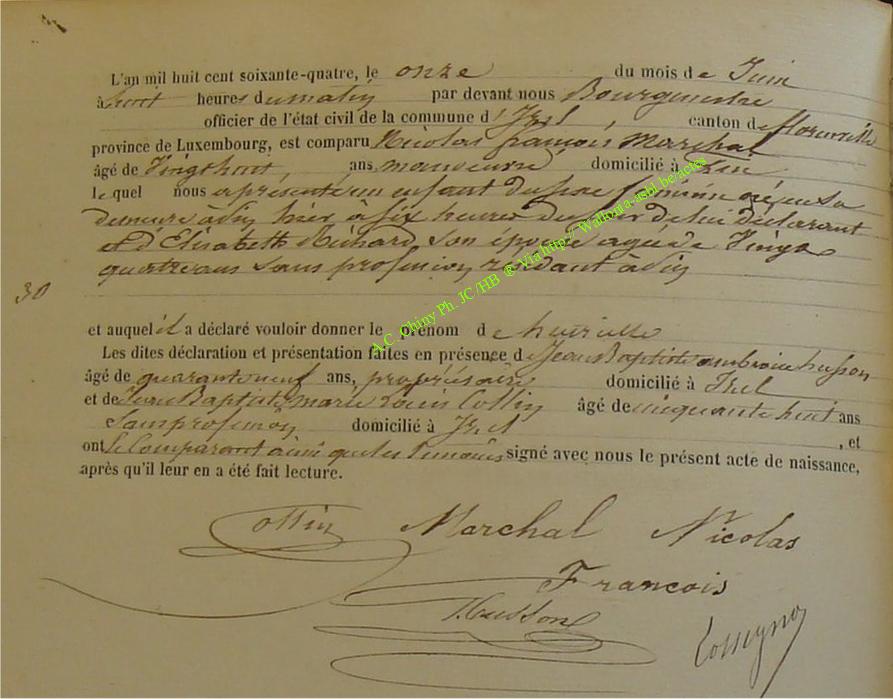 L'an mil huit cent soixante-quatre, le onze du mois de Juin
à huit heures du matin par devant nous Bourgmestre
officier de l'état civil de la commune d'Izel, canton de Florenville
province de Luxembourg, est comparu Nicolas françois Marchal
âgé de Vingthuit, ans manoeuvre domicilié à
le quel nous a présenté un enfant du sexe féminin né en sa
demeure à hier à six heures du soir de lui déclarant
et d'Elisabeth son épouse agée de Vingt
quatre ans sans profession résidant à
30
et auquel il a déclaré vouloir donner le prénom d
Les dites déclaration et présentation faites en présence de Jean Baptiste ambroise husson
âgé de quaranteneuf ans, propriétaire domicilié à Izel
et de Jean Baptiste marie Louis Collin âgé de cinquante huit ans
Sans profession domicilié à Izel, et
ont le Comparant ainsi que les temoins signé avec nous le présent acte de naissance,
après qu'il leur en a été fait lecture.
Collin Marchal Nicolas
Francois
Husson
A.C. Chiny Ph. JC/HB ® Via http:// Wallonia-asbl.be/actes